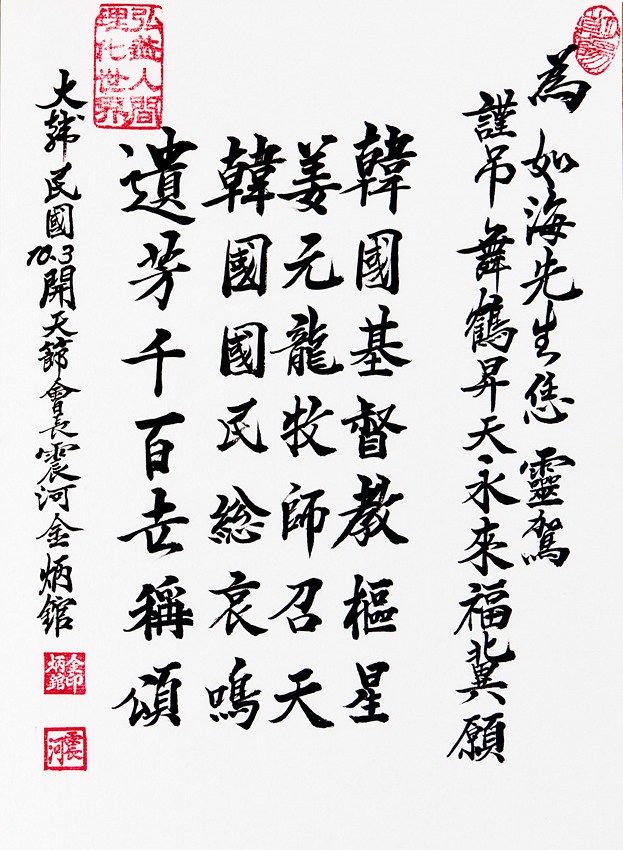 為如海先生恁靈駕
謹吊舞鶴昇天永來福冀願
韓國基督教樞星
姜元龍牧師召天
韓國國民総哀鳴
遺芳千百世稱頌
大韓民國10.3開天節會長震河金炳館
弘益人間
理化世界
金印
炳館
震河